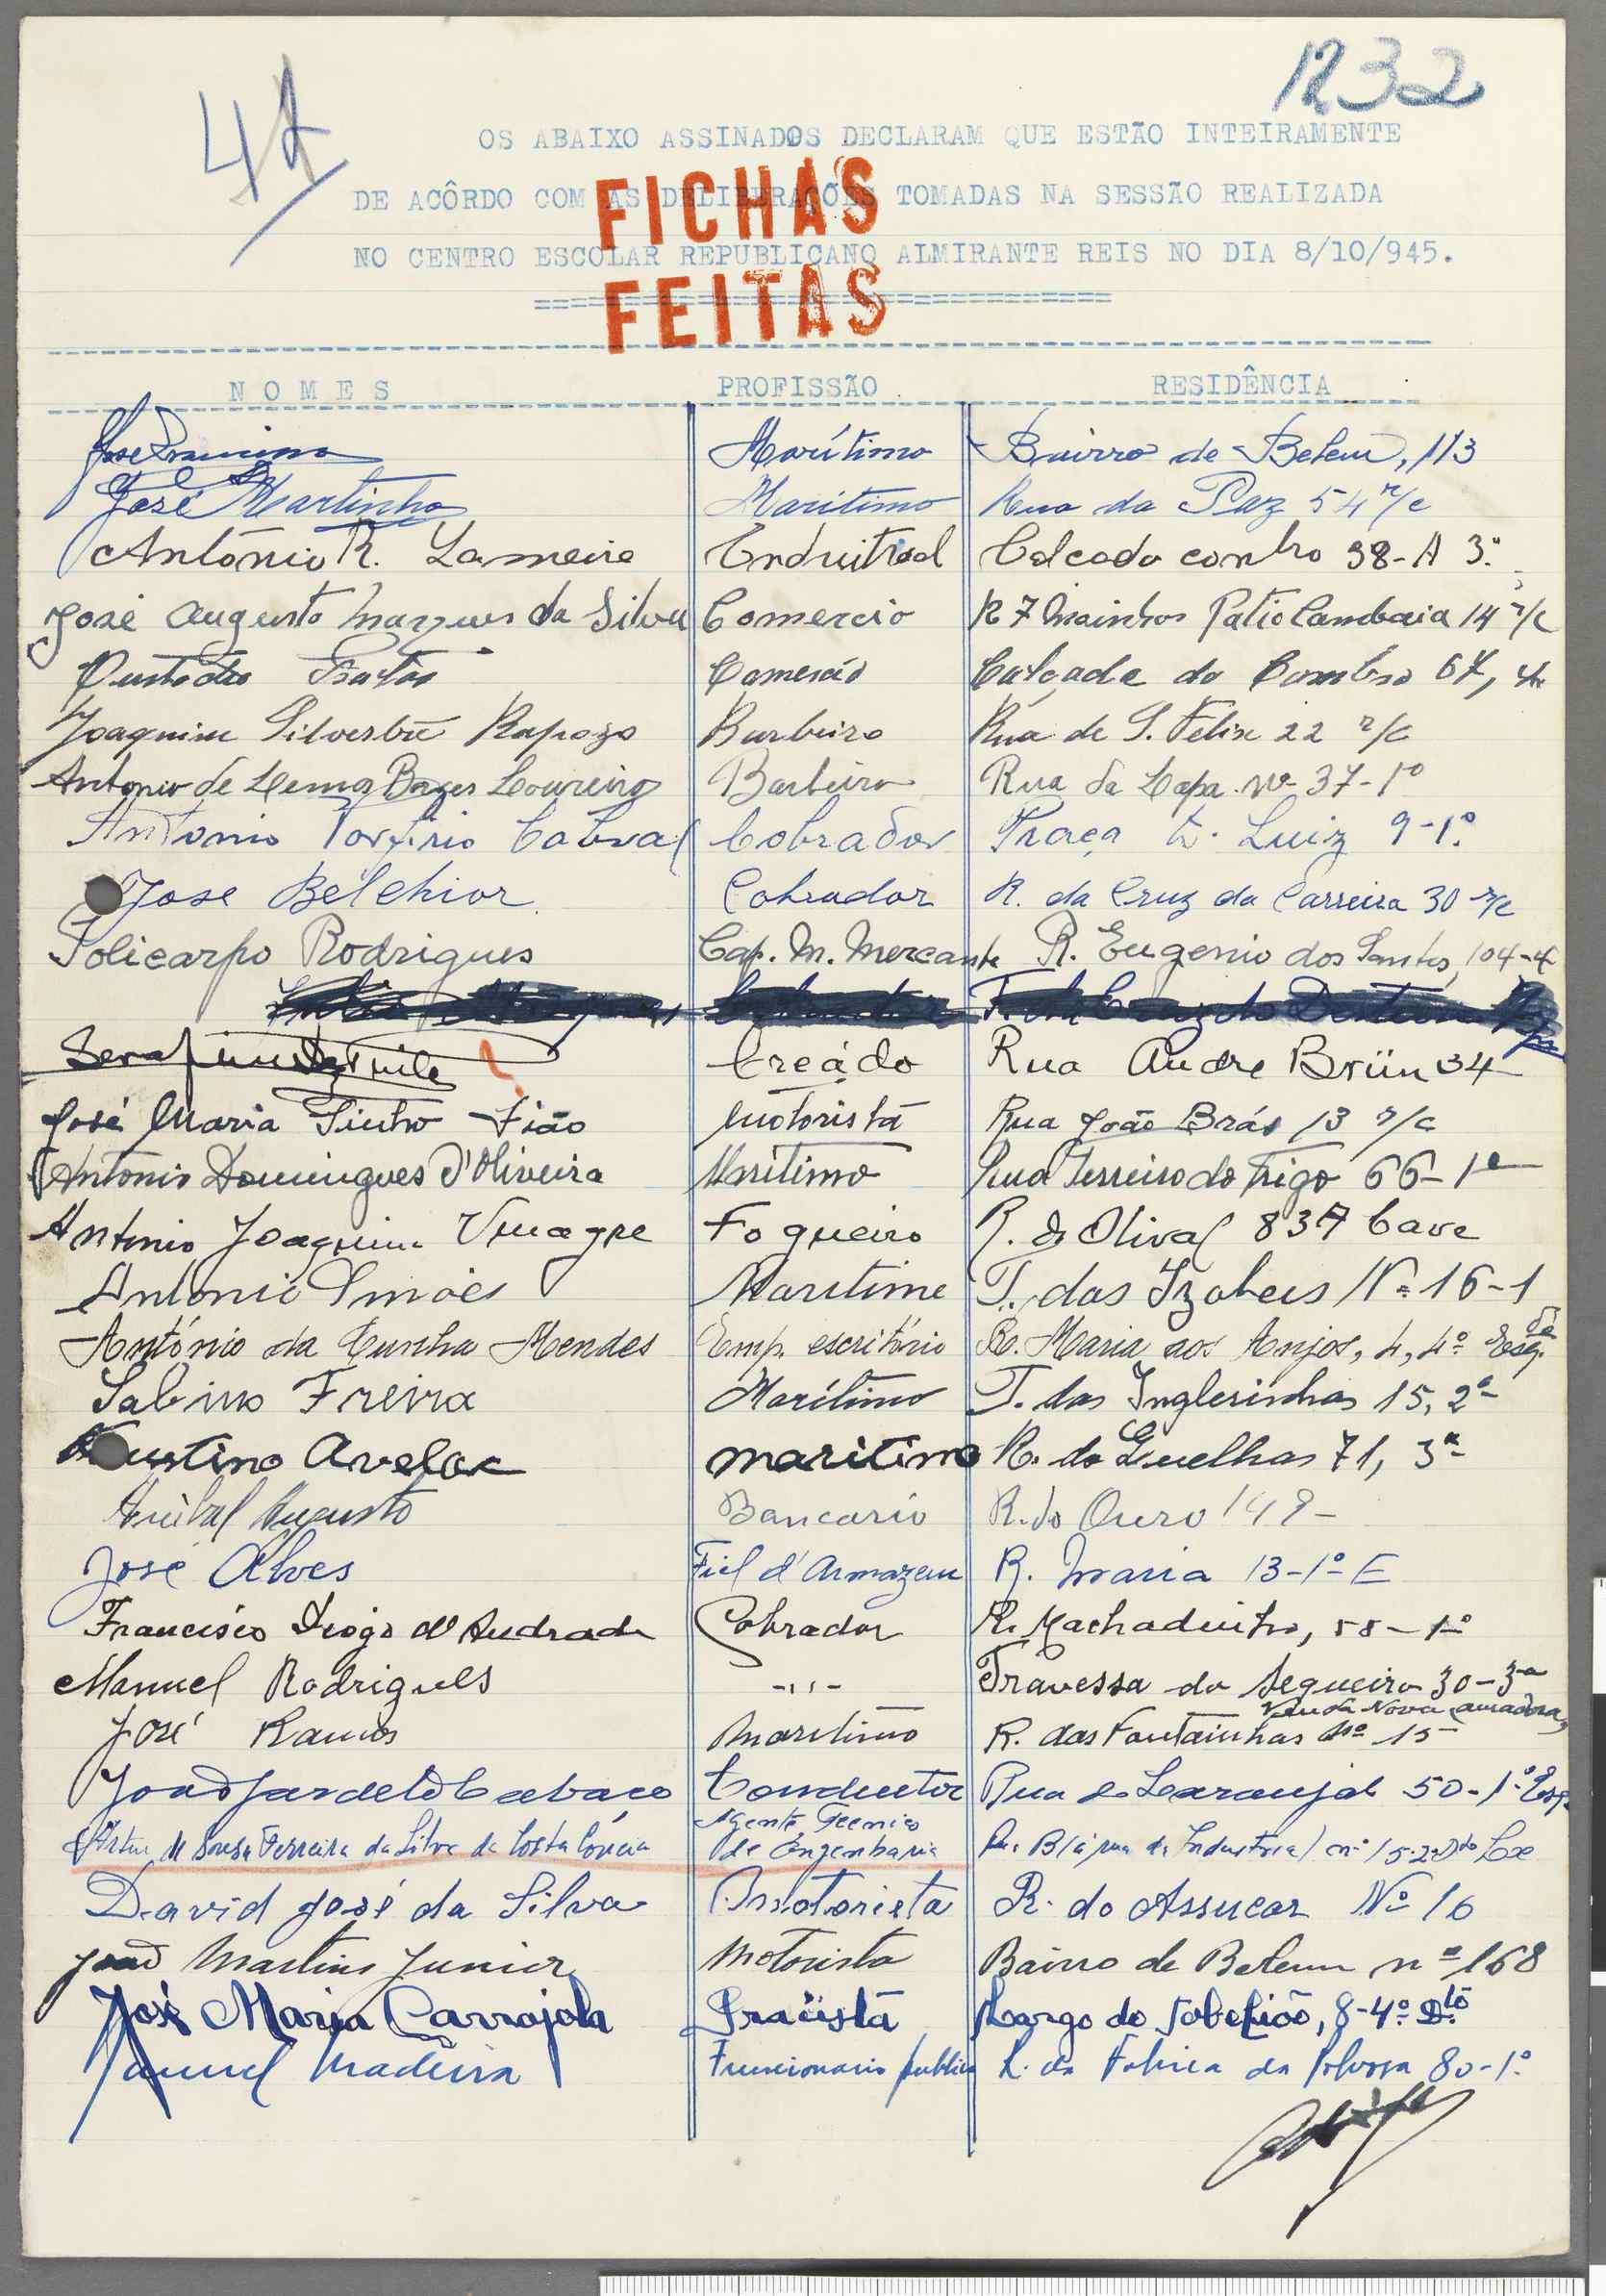 1232
42
OS ABAIXO ASSINADOS DECLARAM QUE ESTÃO INTEIRAMENTE
DE ACÔRDO COM AS DELIBERAÇÕES TOMADAS NA SESSÃO REALIZADA
NO CENTRO ESCOLAR REPUBLICANO ALMIRANTE REIS NO DIA 8/10/945.
FICHAS
FEITAS
NOMES PROFISSÃO RESIDÊNCIA
José Marítimo Bairro de Belem, 113
José Martinho Marítimo Rua da Paz 54 r/c
António R. Lameira Industrial Calçada 38-A 3.º
José Augusto Marques da Silva Comercio R 7 Moinhos Patio Cambaia 14 r/c
Custodio Comercio Calçada do Combro 67, 4
Joaquim Silvestre Rapozo Barbeiro Rua de S. Felix 22 r/c
Antonio de Lemos Borges Loureiro Barbeiro Rua da Lapa nº 37-1º
Antonio Porfirio Cabral Cobrador Praça D. Luiz 9-1.º
Jose Belchior Cobrador R. da Cruz da Carreira 30 r/c
Policarpo Rodrigues Cap. M. Mercante R. Eugenio dos Santos, 104-4
Serafim Creádo Rua Andre Brün 34
José Maria Pinto Fião Motorista Rua João Brás 13 r/c
António Domingues d'Oliveira Marítimo Rua Terreiro do Trigo 66-1º
Antonio Joaquim Vinagre Fogueiro R. do Olival 83 Cave
Antonio Simões Maritimo T. das Izabeis Nº 16-1
António da Cunha Mendes Emp. escritório R. Maria aos Anjos, 4, 4º Esq.
Sabino Freira Marítimo T. das Inglesinhas 15, 2º
Faustino Avelar maritimo R. do Quelhas 71, 3º
Anibal Augusto Bancario R. do Ouro 149-
José Alves Fiel d'Armazem R. Maria 13-1º E
Francisco Diogo d'Andrade Cobrador R. Machadinho, 58-1º
Manuel Rodrigues -,,- Travessa do Sequeiro 30-3º
Venda Nova Amadora
José Ramos Maritimo R. das Fontainhas Nº 15
João Cabaço Conductor Rua do Laranjal 50-1º Esq.
Artur M Sousa Ferreira da Silva da Costa Correia Agente Tecnico de Engenharia Rua B (á rua da Industria) nº 15-2º Dto Lx
David José da Silva Motorista R. do Assucar Nº 16
João Martins Junior Motorista Bairro de Belem nº 168
José Maria Carrajola Largo do Tabelião, 8-4º Dto
Manuel Madeira Funcionario publico R. da Fabrica da Polvora 80-1.º